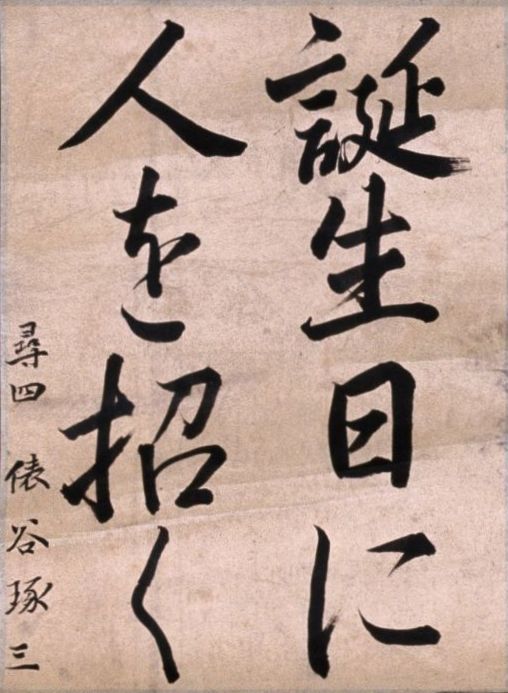 誕生日に
人を招く
尋四 俵谷琢三